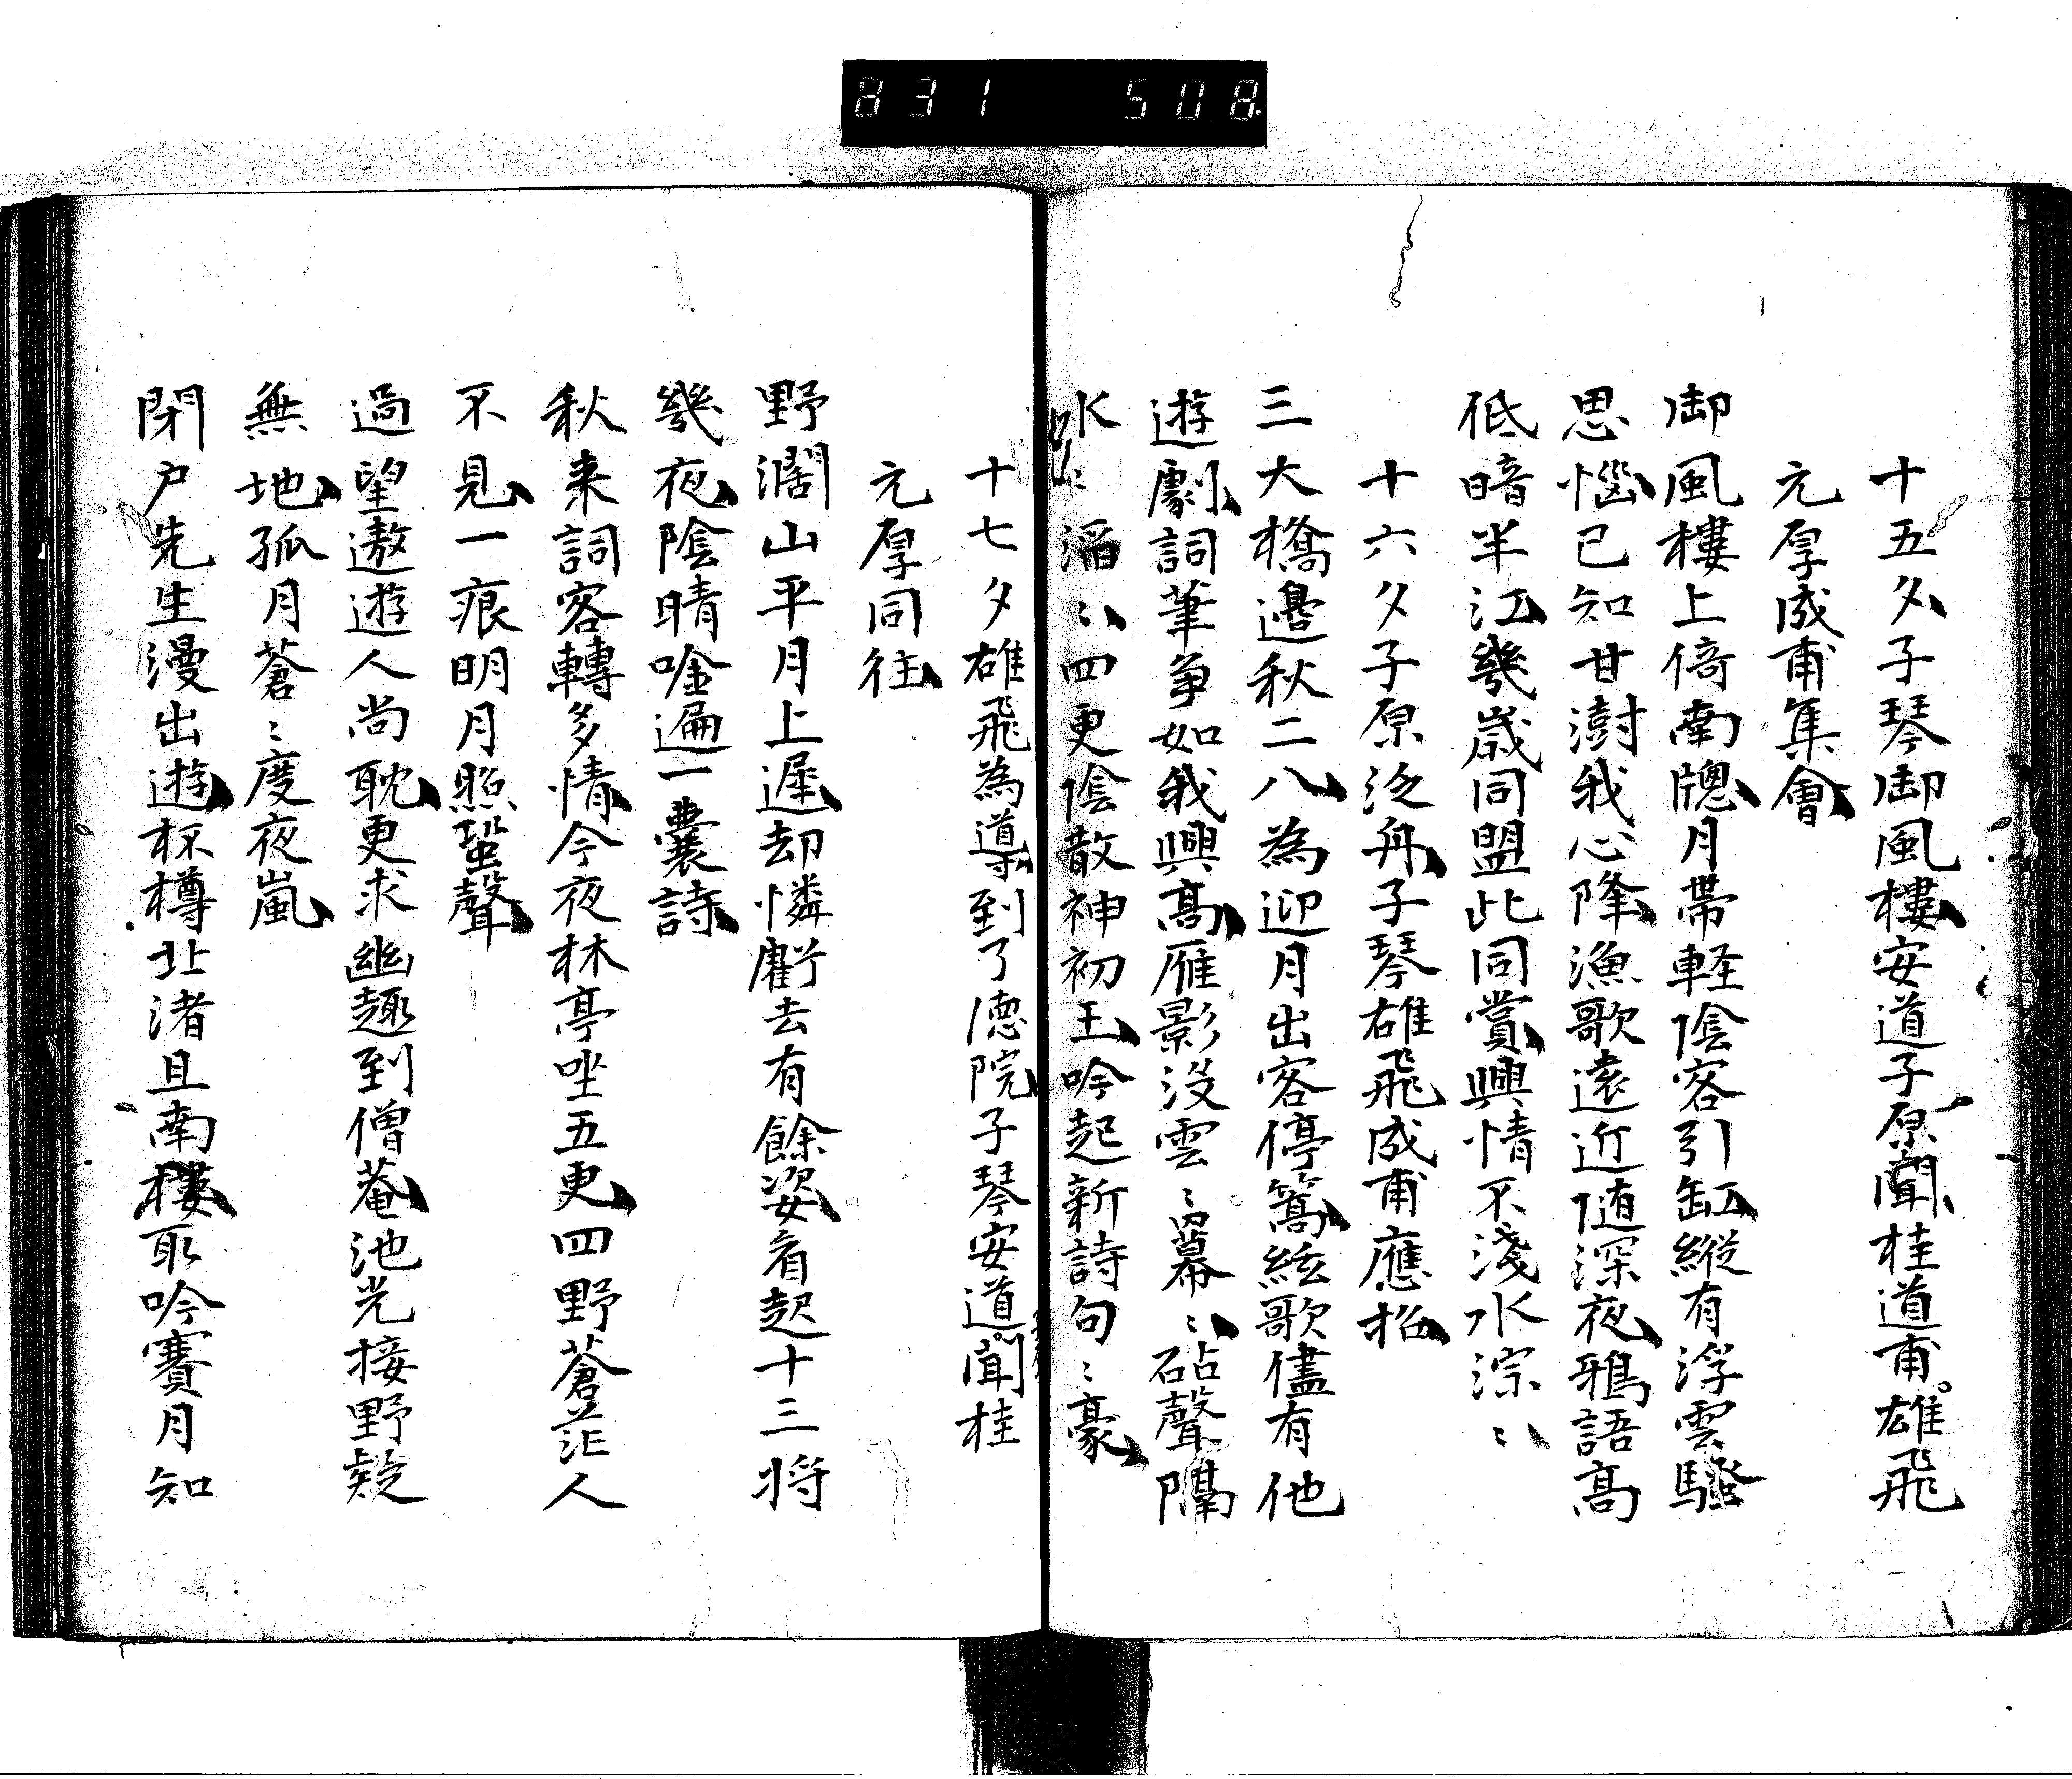 831 508
十五夕子琴御風樓安道子原聞桂道甫雄飛
元厚成甫集會
御風樓上倚南牕月帶軽陰客引缸縱有浮雲騷
思惱已知甘澍我心降漁歌遠近随深夜鴉語高
低暗半江幾歳同盟此同賞興情不淺水淙〻
十六夕子原泛舟子琴雄飛成甫應招
三大橋邉秋二八為迎月出客停篙絃歌儘有他
遊劇詞筆爭如我興髙雁影沒雲〻冪〻砧聲隔
水〻滔〻四更陰散神初王吟起新詩句〻豪
十七夕雄飛為導到了德院子琴安道聞桂
元厚同往
野濶山平月上遲却憐虧去有餘姿看起十三将
幾夜陰晴唫遍一囊詩
秋来詞客轉多情今夜林亭唑五更四野蒼茫人
不見一痕明月照蛩聲
過望遨遊人尚耽更求幽趣到僧菴池光接野疑
無地孤月蒼〻度夜嵐
閉戸先生漫出遊杯樽北渚且南樓耴吟賽月知